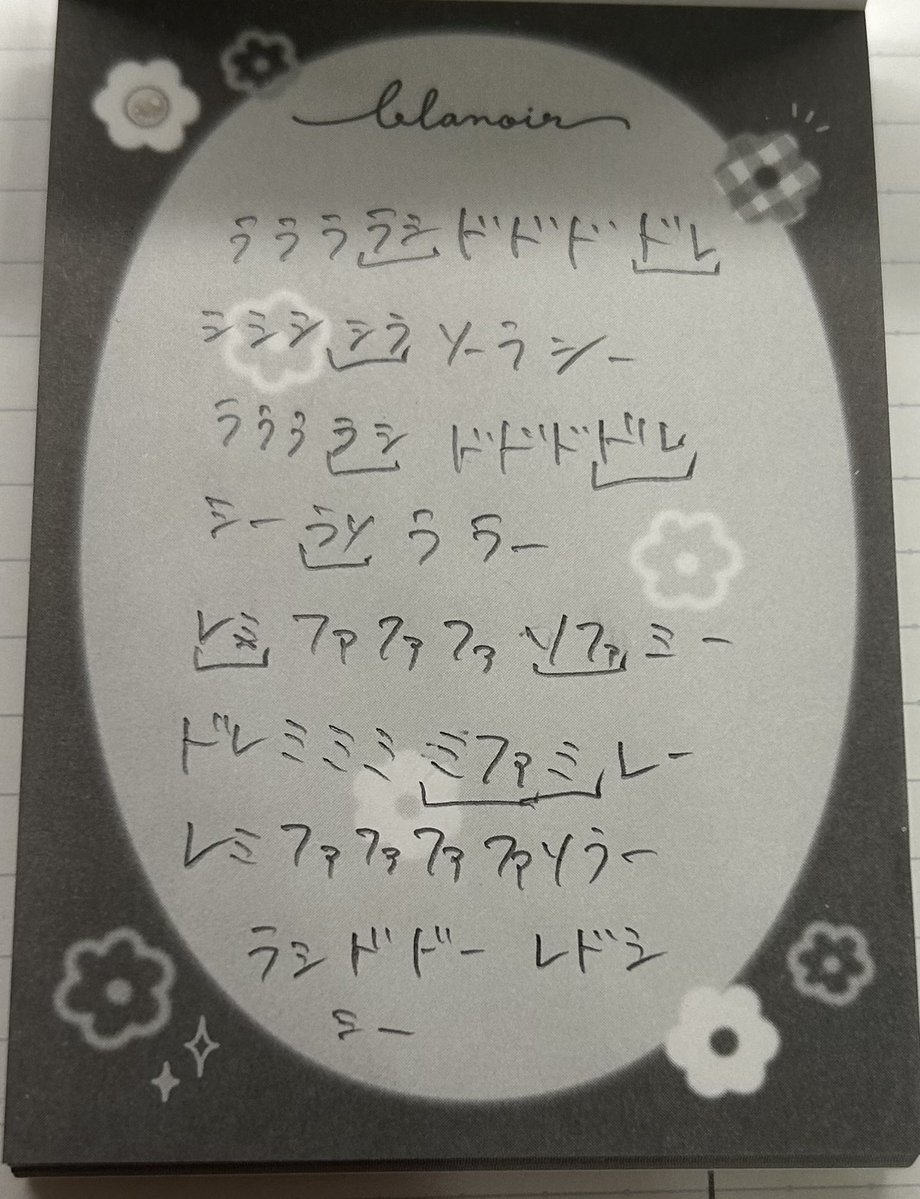 lelanoir
ラララララシ ドドドドレ
シシシシラ ソーラシー
ララララシ ドドドドレ
シーラソララー
レミファファファソファミー
ドレミミミミファミレー
レミファファファファソラー
ラシドドー レドシ
シー